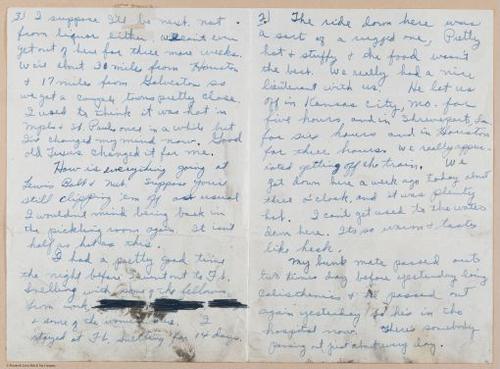 3) I suppose I'll be next. not
from liquor either. We can't even
get out of here for three more weeks.
We're about 30 miles from Houston
+ 17 miles from Galveston so
we got a couple towns pretty close.
I used to think it was hot in
Mpls + St. Paul once in a while but
I've changed my mind now. Good
old Texas changed it for me.
How is everything going at
Lewis Bolt & Nut. Suppose you're
still clipping 'em off as usual
I wouldn't mind being back in
the pickling room again. It isn't
half as hot as this.
I had a pretty good time
the night before I went out to Ft.
Snelling with some of the fellows
from work
+ some of the women. I
stayed at Ft. Snelling for 14 days.
2) The ride down here was
a sort of a rugged one, Pretty
hot & stuffy & the food wasn't
the best. We really had a nice
lieutenant with us. He let us
off in Kansas City, Mo. for
five hours, and in Shreveport, La
for six hours and in Houston
for three hours. We really appre-
ciated getting off the train. We
got down here a week ago today about
three o'clock, and it was plenty
hot. I can't get used to the water
down here. Its so warm & tastes
like heck.
My bunk mate passed out
two times day before yesterday doing
calisthenics & he passed out
again yesterday so his in the
hospital now. There's somebody
passing out just about every day.